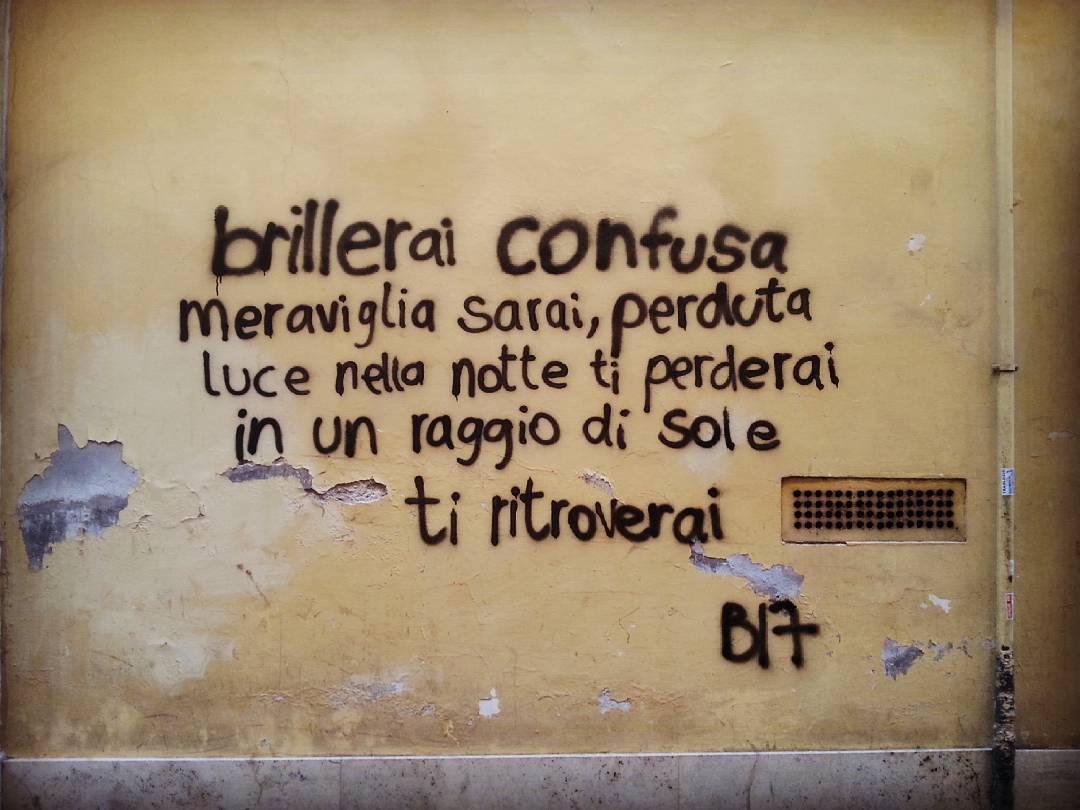 brillerai confusa
meraviglia sarai, perduta
luce nella notte ti perderai
in un raggio di sole
ti ritroverai
B17